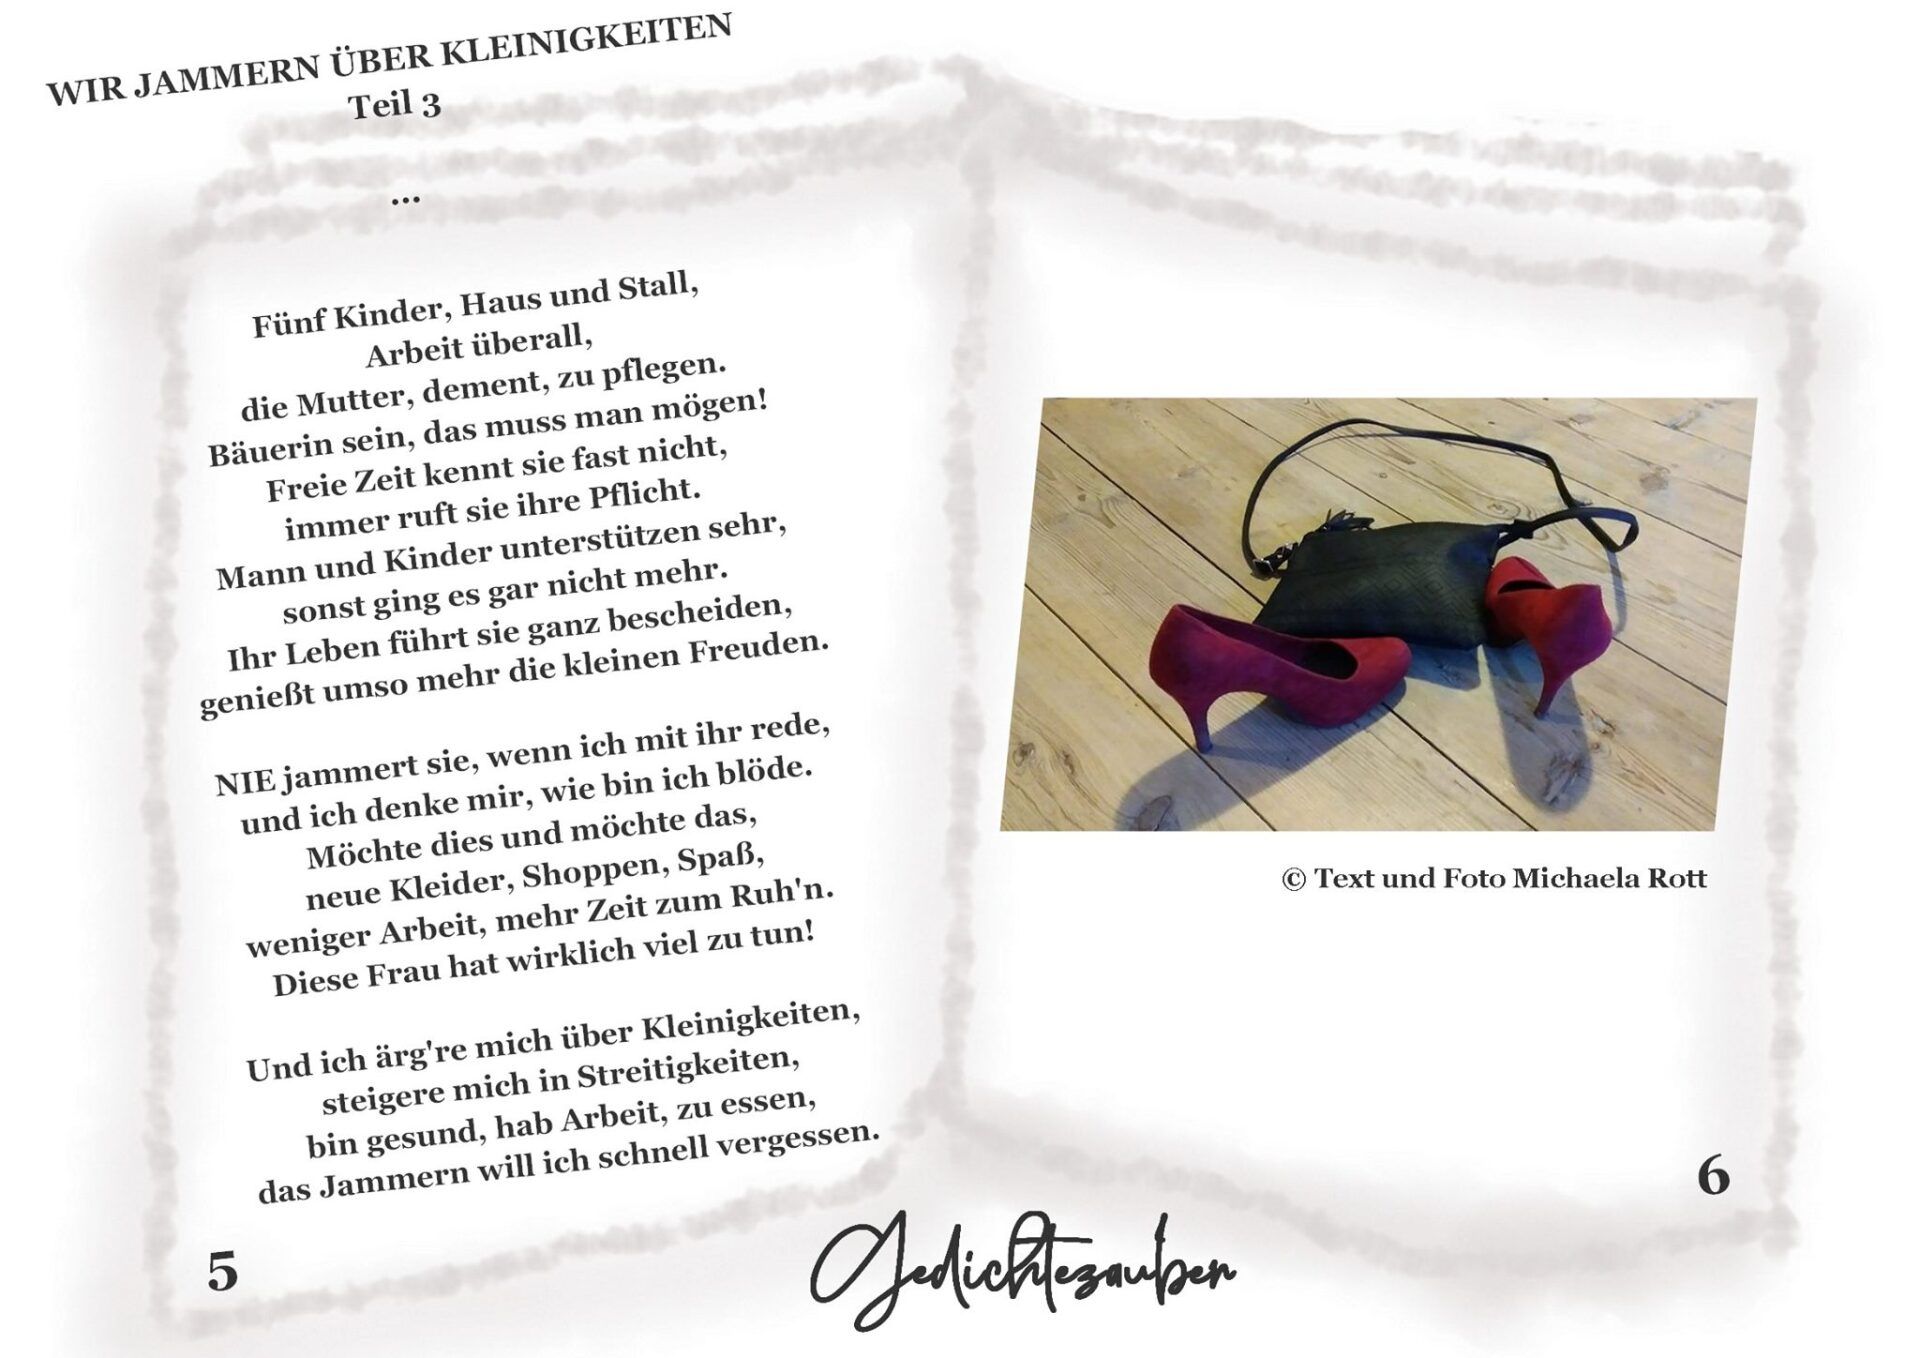 WIR JAMMERN ÜBER KLEINIGKEITEN
Teil 3
...
Fünf Kinder, Haus und Stall,
Arbeit überall,
die Mutter, dement, zu pflegen.
Bäuerin sein, das muss man mögen!
Freie Zeit kennt sie fast nicht,
immer ruft sie ihre Pflicht.
Mann und Kinder unterstützen sehr,
sonst ging es gar nicht mehr.
Ihr Leben führt sie ganz bescheiden,
genießt umso mehr die kleinen Freuden.
NIE jammert sie, wenn ich mit ihr rede,
und ich denke mir, wie bin ich blöde.
Möchte dies und möchte das,
neue Kleider, Shoppen, Spaß,
weniger Arbeit, mehr Zeit zum Ruh'n.
Diese Frau hat wirklich viel zu tun!
Und ich ärg're mich über Kleinigkeiten,
steigere mich in Streitigkeiten,
bin gesund, hab Arbeit, zu essen,
das Jammern will ich schnell vergessen.
5
© Text und Foto Michaela Rott
6
Gedichtezauber